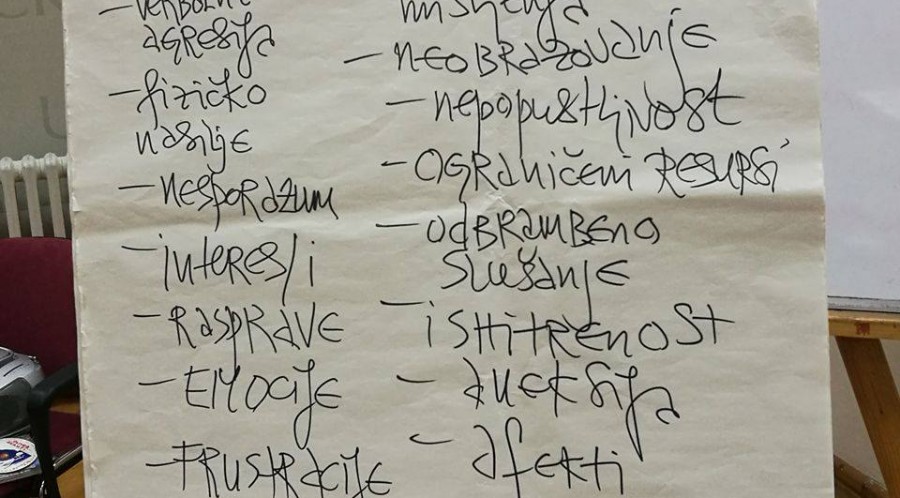 agresija
- fizičko
nasilje
- nesporazum
- interesi
- rasprave
- emocije
- frustracije
mišljenja
- neobrazovanje
- nepopustljivost
- ograničeni resursi
- odbrambeno
slušanje
- ishitrenost
- afekti